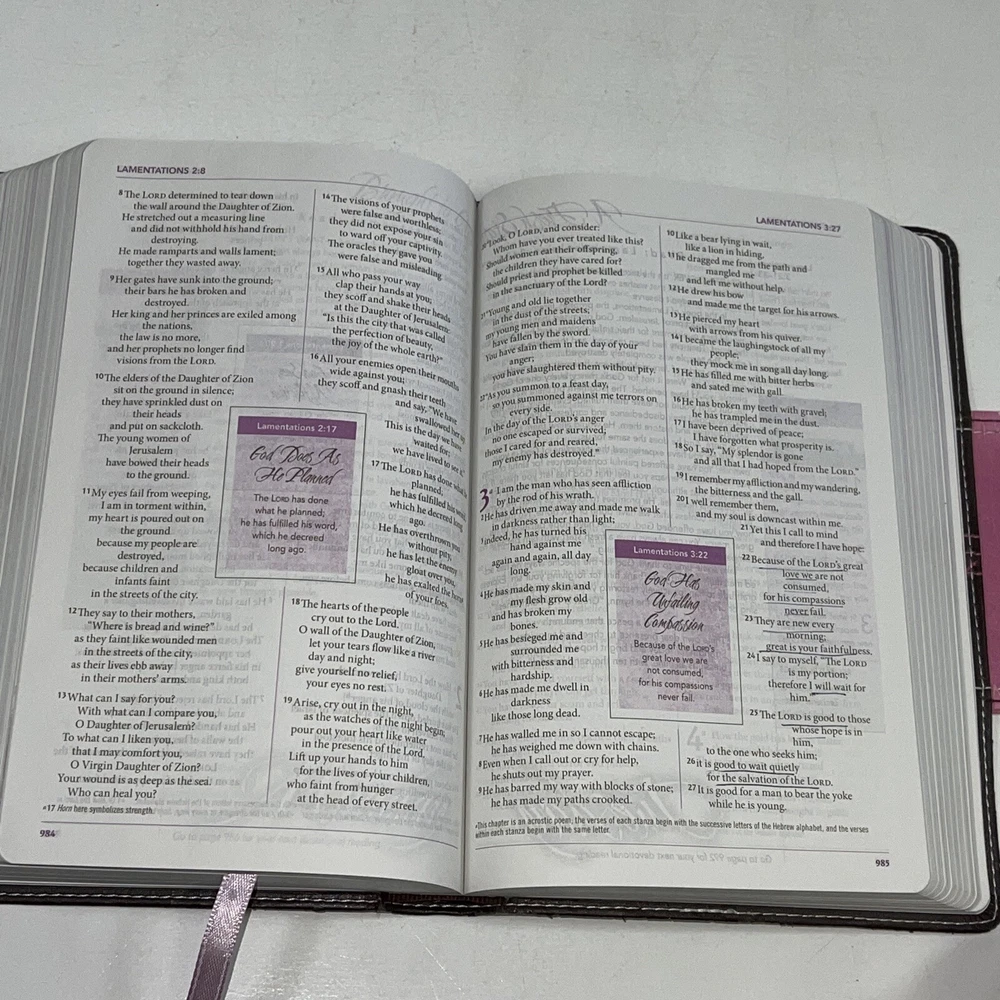 LAMENTATIONS 2:8
8 The LORD determined to tear down
the wall around the Daughter of Zion.
He stretched out a measuring line
and did not withhold his hand from
destroying.
He made ramparts and walls lament;
together they wasted away.
9 Her gates have sunk into the ground;
their bars he has broken and
destroyed.
Her king and her princes are exiled among
the nations,
the law is no more,
and her prophets no longer find
visions from the LORD.
10 The elders of the Daughter of Zion
sit on the ground in silence;
they have sprinkled dust on
their heads
and put on sackcloth.
The young women of
Jerusalem
have bowed their heads
to the ground.
11 My eyes fail from weeping,
I am in torment within,
my heart is poured out on
the ground
because my people are
destroyed,
because children and
infants faint
in the streets of the city.
12 They say to their mothers,
"Where is bread and wine?"
as they faint like wounded men
in the streets of the city,
as their lives ebb away
in their mothers' arms.
13 What can I say for you?
With what can I compare you,
O Daughter of Jerusalem?
To what can I liken you,
that I may comfort you,
O Virgin Daughter of Zion?
Your wound is as deep as the sea.
Who can heal you?
14 The visions of your prophets
were false and worthless;
they did not expose your sin
to ward off your captivity.
The oracles they gave you
were false and misleading.
15 All who pass your way
clap their hands at you;
they scoff and shake their heads
at the Daughter of Jerusalem:
"Is this the city that was called
the perfection of beauty,
the joy of the whole earth?"
16 All your enemies open their mouths
wide against you;
they scoff and gnash their teeth
and say, "We have
swallowed her up.
This is the day we have
waited for;
we have lived to see it."
17 The LORD has done what he
planned;
he has fulfilled his word,
which he decreed long
ago.
He has overthrown you
without pity,
he has let the enemy
gloat over you,
he has exalted the horn
of your foes.
Lamentations 2:17
God Does As
He Planned
The LORD has done
what he planned;
he has fulfilled his word,
which he decreed
long ago.
18 The hearts of the people
cry out to the Lord.
O wall of the Daughter of Zion,
let your tears flow like a river
day and night;
give yourself no relief,
your eyes no rest.
19 Arise, cry out in the night,
as the watches of the night begin;
pour out your heart like water
in the presence of the Lord.
Lift up your hands to him
for the lives of your children,
who faint from hunger
at the head of every street.
a17 Horn here symbolizes strength.
984
LAMENTATIONS 3:27
20 "Look, O LORD, and consider:
Whom have you ever treated like this?
Should women eat their offspring,
the children they have cared for?
Should priest and prophet be killed
in the sanctuary of the Lord?
21 "Young and old lie together
in the dust of the streets;
my young men and maidens
have fallen by the sword.
You have slain them in the day of your
anger;
you have slaughtered them without pity.
22 "As you summon to a feast day,
so you summoned against me terrors on
every side.
In the day of the LORD'S anger
no one escaped or survived;
those I cared for and reared,
my enemy has destroyed."
3a I am the man who has seen affliction
by the rod of his wrath.
2 He has driven me away and made me walk
in darkness rather than light;
3 indeed, he has turned his
hand against me
again and again, all day
long.
4 He has made my skin and
my flesh grow old
and has broken my
bones.
5 He has besieged me and
surrounded me
with bitterness and
hardship.
6 He has made me dwell in
darkness
like those long dead.
7 He has walled me in so I cannot escape;
he has weighed me down with chains.
8 Even when I call out or cry for help,
he shuts out my prayer.
9 He has barred my way with blocks of stone;
he has made my paths crooked.
10 Like a bear lying in wait,
like a lion in hiding,
11 he dragged me from the path and
mangled me
and left me without help.
12 He drew his bow
and made me the target for his arrows.
13 He pierced my heart
with arrows from his quiver.
14 I became the laughingstock of all my
people;
they mock me in song all day long.
15 He has filled me with bitter herbs
and sated me with gall.
16 He has broken my teeth with gravel;
he has trampled me in the dust.
17 I have been deprived of peace;
I have forgotten what prosperity is.
18 So I say, "My splendor is gone
and all that I had hoped from the LORD."
19 I remember my affliction and my wandering,
the bitterness and the gall.
20 I well remember them,
and my soul is downcast within me.
21 Yet this I call to mind
and therefore I have hope:
22 Because of the LORD'S great
love we are not
consumed,
for his compassions
never fail.
23 They are new every
morning;
great is your faithfulness.
24 I say to myself, "The LORD
is my portion;
therefore I will wait for
him."
25 The LORD is good to those
whose hope is in
him,
to the one who seeks him;
26 it is good to wait quietly
for the salvation of the LORD.
27 It is good for a man to bear the yoke
while he is young.
Lamentations 3:22
God Has
Unfailing
Compassion
Because of the LORD'S
great love we are
not consumed,
for his compassions
never fail.
a This chapter is an acrostic poem; the verses of each stanza begin with the successive letters of the Hebrew alphabet, and the verses
within each stanza begin with the same letter.
985